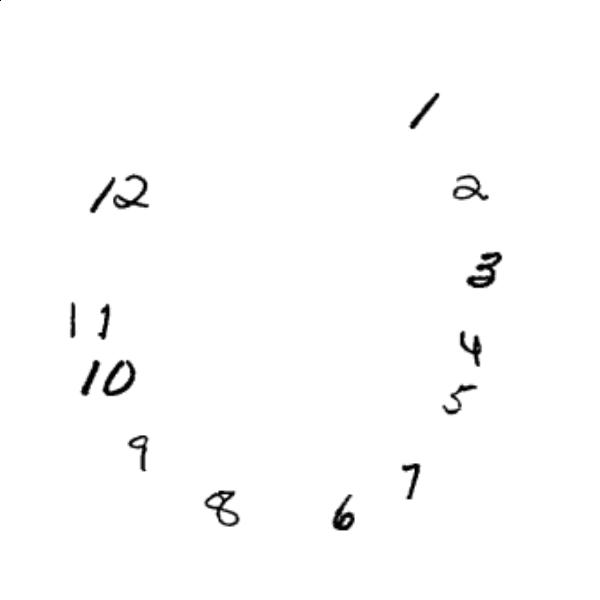 1
12 2
3
11 4
10 5
9 7
8 6